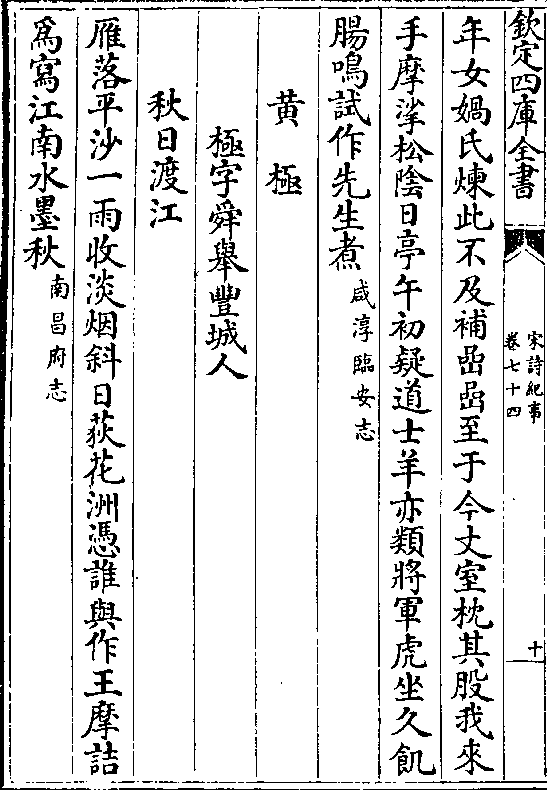 欽定四庫全書
宋詩紀事
卷七十四
十
年女媧氏煉此不及補嵒嵒至于今丈室枕其股我來
手摩挲松陰日亭午初疑道士羊亦類將軍虎坐久飢
腸鳴試作先生煮咸淳臨安志
黄極
極字舜舉豐城人
秋日渡江
雁落平沙一雨收淡烟斜日荻花洲憑誰與作王摩詰
爲寫江南水墨秋南昌府志